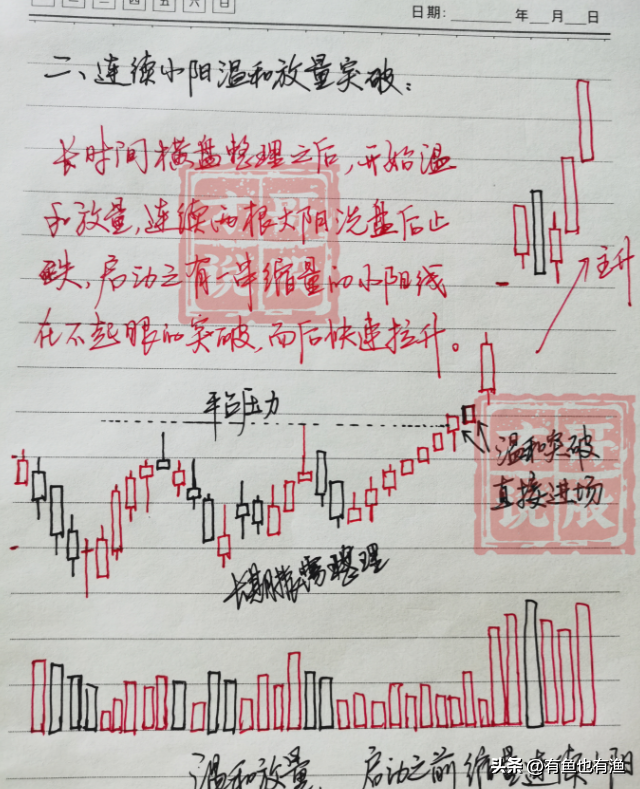 二 三 四 五 六 日
日期: 年 月 日
二、连续小阳温和放量突破:
长时间横盘整理之后,开始温
和放量,连续两根大阳洗盘后止
跌,启动之有一串缩量的小阳线
在不起眼的突破,而后快速拉升。
主升
平台压力
温和突破
直接进场
长期横盘整理
温和放量、启动之前缩量连续小阳
头条 @有鱼也有渔